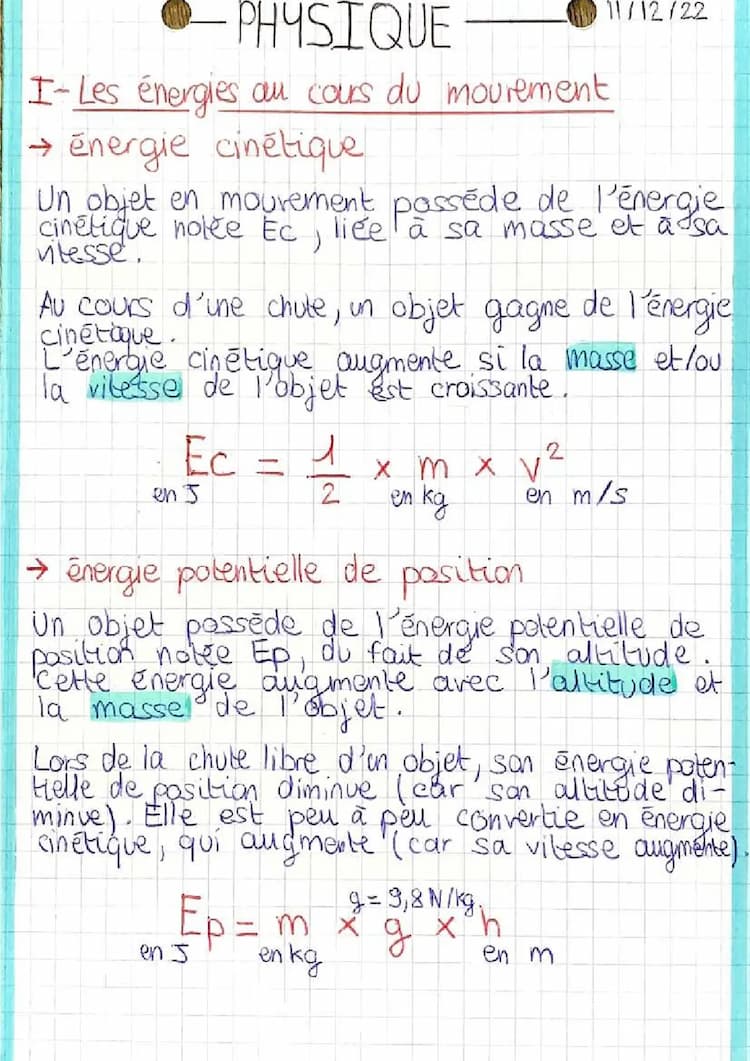 PHYSIQUE 11/12/22
I- Les énergies au cours du mouvement
→ énergie cinétique
Un objet en mouvement possède de l'énergie
cinétique notée Ec, liée à sa masse et à sa
vitesse.
Au cours d'une chute, un objet gagne de l'énergie
cinétique.
L'énergie cinétique augmente si la masse et/ou
la vitesse de l'objet est croissante.
Ec = 1/2 x m x v²
en J en kg en m/s
→ énergie potentielle de position
Un objet possède de l'énergie potentielle de
position notée Ep, du fait de son altitude.
Cette énergie augmente avec l'altitude et
la masse de l'objet.
Lors de la chute libre d'un objet, son énergie poten-
tielle de position diminue (car son altitude di-
minue). Elle est peu à peu convertie en énergie
cinétique, qui augmente (car sa vitesse augmente).
g = 9,8 N/kg
Ep = m x g x h
en J en kg en m